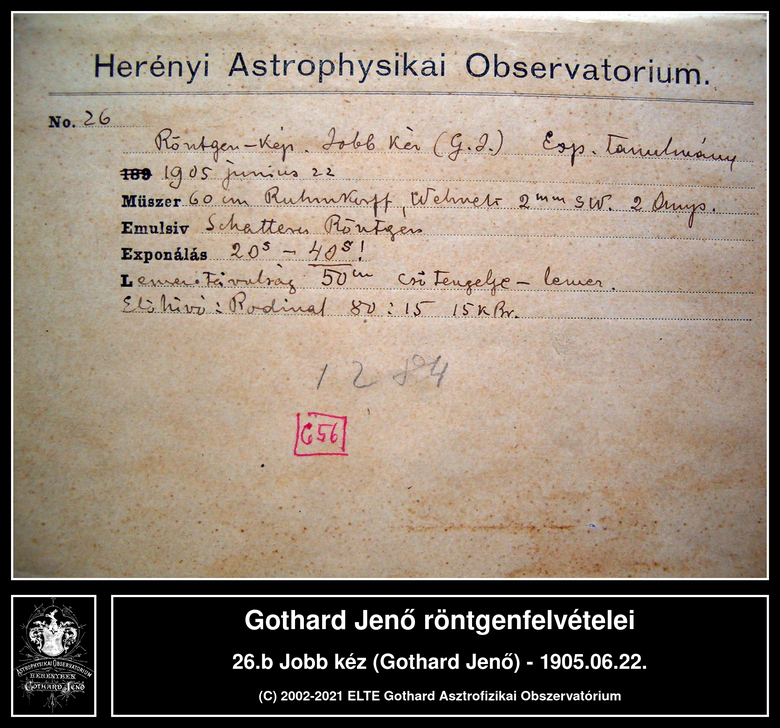 Herényi Astrophysikai Observatorium.
No. 26
Röntgen-Kép. Jobb kéz (G.J.) Exp. Tanulmány
189 1905 junius 22
Müszer 60 cm Ruhmkorff, Wehnelt 2mm SW. 2 Amp.
Emulsiv Schatteras Röntgen
Exponálás 20s – 40s!
Lemez Távolság 50cm cső tengelye – lemez.
Előhívó: Rodinal 80 : 15 15 KBr.
1284
G56
Gothard Jenő röntgenfelvételei
26.b Jobb kéz (Gothard Jenő) - 1905.06.22.
(C) 2002-2021 ELTE Gothard Asztrofizikai Obszervatórium
ASTROPHYSIKAI OBSERVATORIUM
HERÉNYBEN
GOTHARD JENŐ